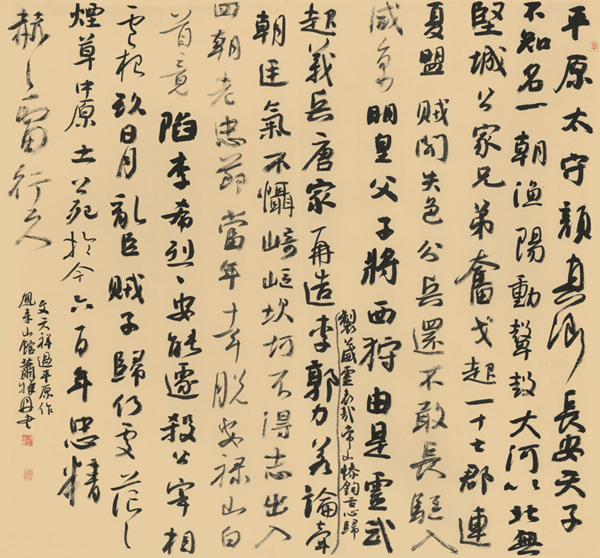 平原太守顏真卿長安天子
不知名一朝漁陽動鼙鼓大河以北無
堅城公家兄弟奮戈起一十七郡連
夏盟賊聞失色分兵還不敢長驅入
咸京明皇父子將西狩由是靈武
起義兵唐家再造李郭力若論牽
製公威靈哀哉常山慘鈎舌心歸
朝廷氣不懾崎嶇坎坷不得志出入
四朝老忠節當年幸脫安祿山白
首竟陷李希烈〻安能遽殺公宰相
盧杞欺日月亂臣賊子歸何處茫〻
煙草中原土公死於今六百年忠精
赫〻雷行天
文天祥過平原作
鳳來山館蕭雅書